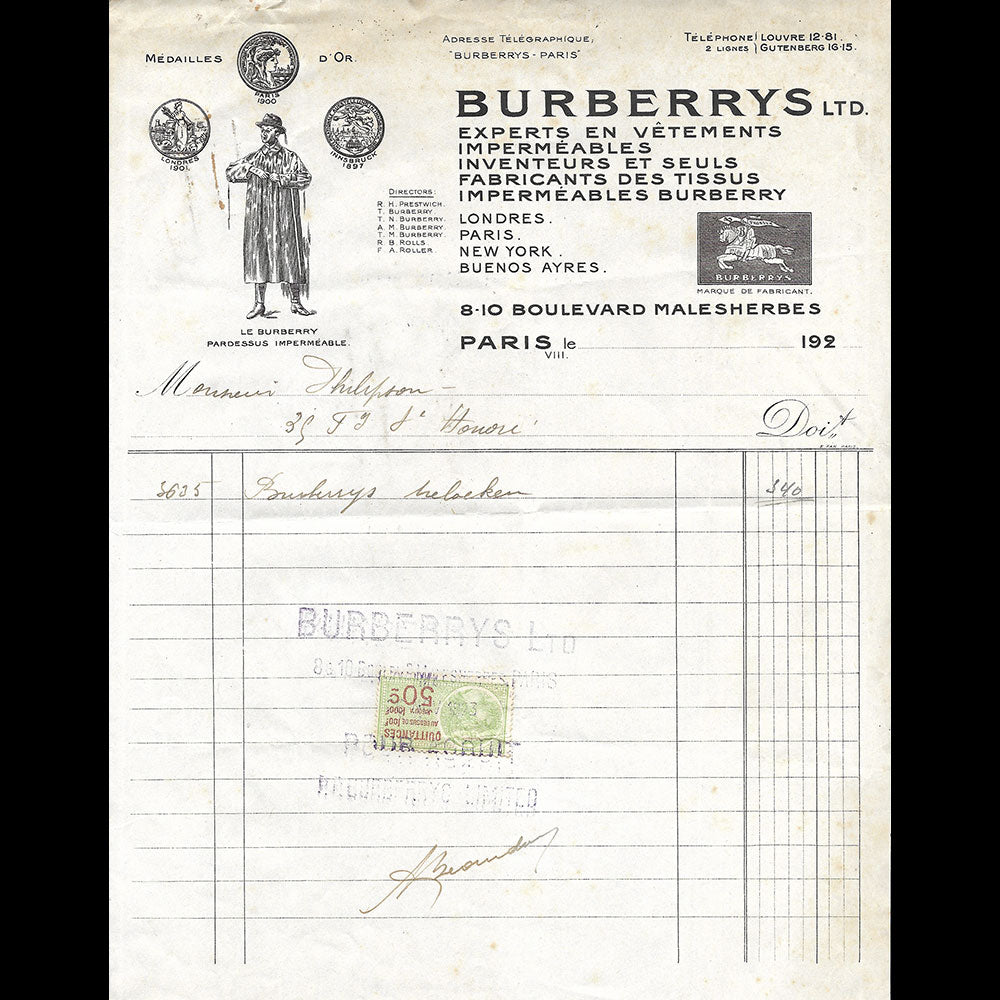 MÉDAILLES D'OR.
PARIS
1900
LONDRES
1901.
INNSBRUCK
1897
LE BURBERRY
PARDESSUS IMPERMÉABLE.
ADRESSE TÉLÉGRAPHIQUE,
"BURBERRYS-PARIS"
TÉLÉPHONE LOUVRE 12-81.
2 LIGNES GUTENBERG 16-15.
BURBERRYS LTD.
EXPERTS EN VÊTEMENTS
IMPERMÉABLES
INVENTEURS ET SEULS
FABRICANTS DES TISSUS
IMPERMÉABLES BURBERRY
DIRECTORS:
R. H. PRESTWICH.
T. BURBERRY.
T. N. BURBERRY.
A. M. BURBERRY.
T. M. BURBERRY.
R. B. ROLLS.
F. A. ROLLER.
LONDRES.
PARIS.
NEW YORK.
BUENOS AYRES.
BURBERRYS
MARQUE DE FABRICANT.
8-10 BOULEVARD MALESHERBES
PARIS le 192
VIII.
Monsieur Philipson
35 Fg St Honoré
Doit
5635 Burberrys 540
BURBERRYS LTD
8 & 10 PARIS
50c
JUSQU'A 1000F
AU DESSUS DE 100F
QUITTANCES
POUR ACQUIT
BURBERRYS LIMITED